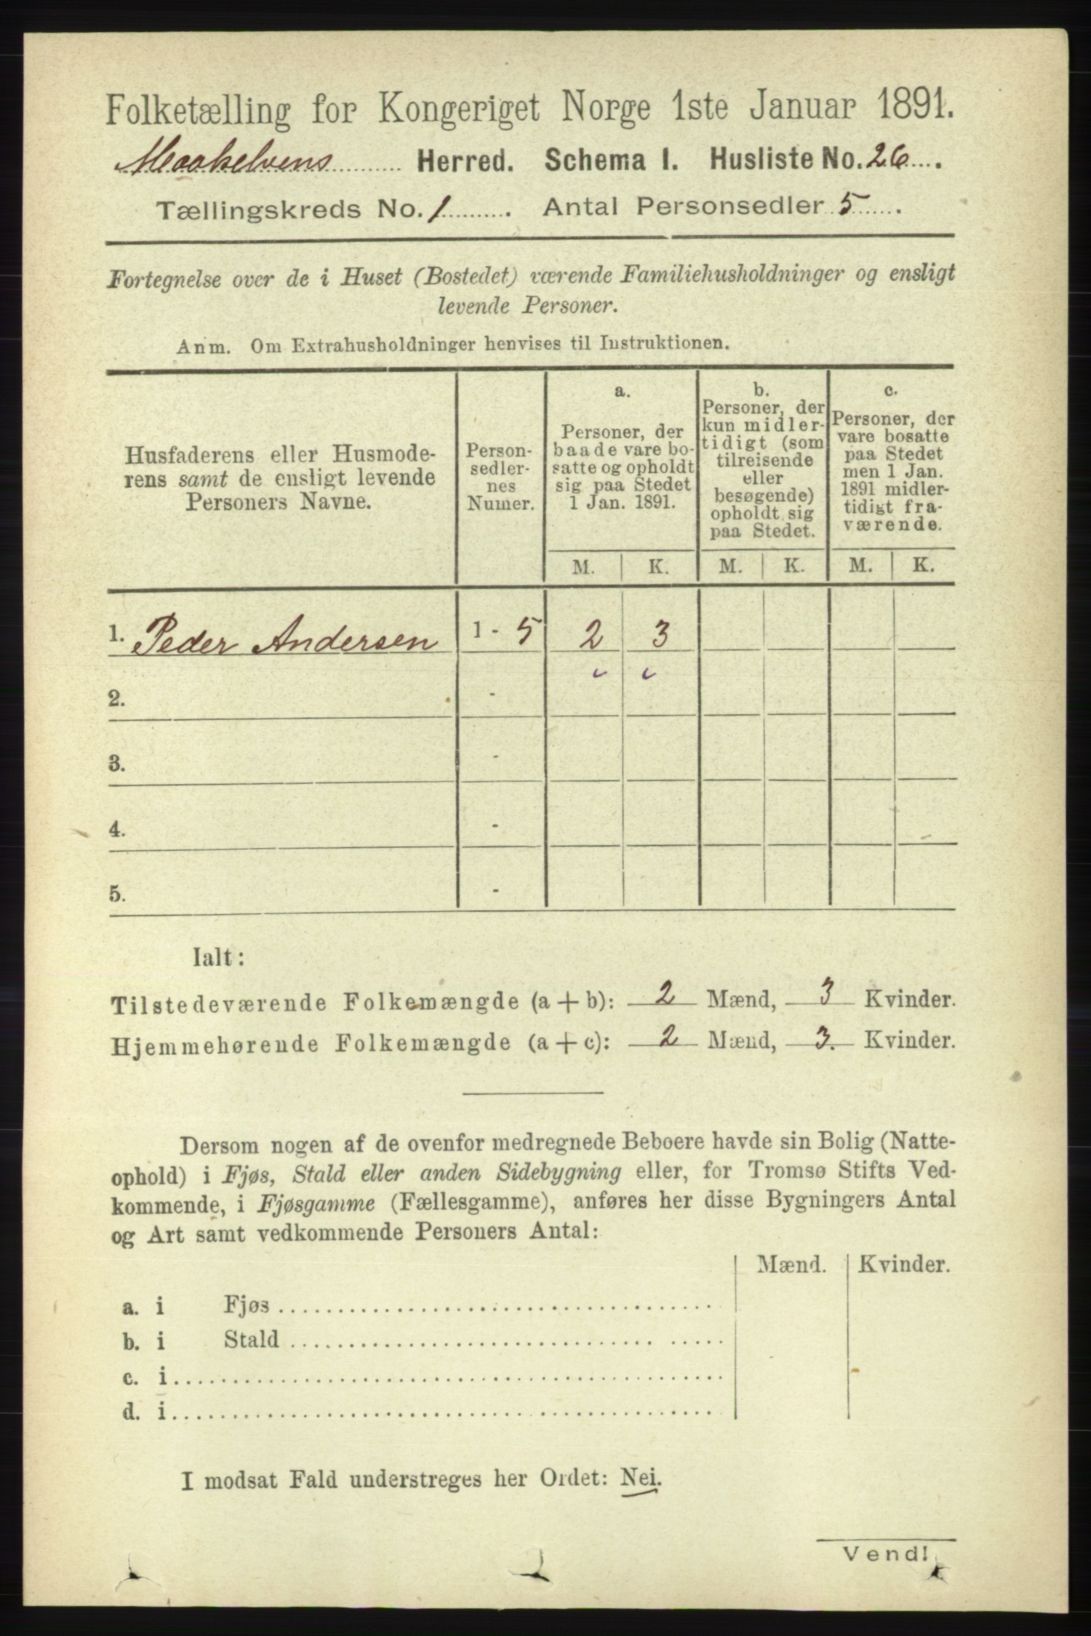 Folketælling for Kongeriget Norge 1ste Januar 1891.
Maakelvens Herred. Schema I. Husliste No. 26.
Tællingskreds No. 1. Antal Personsedler 5.
Fortegnelse over de i Huset (Bostedet) værende Familiehusholdninger og ensligt
levende Personer.
Anm. Om Extrahusholdninger henvises til Instruktionen.
Husfaderens eller Husmode-
rens samt de ensligt levende
Personers Navne.
Person-
sedler-
nes
Numer.
a.
Personer, der
baade vare bo-
satte og opholdt
sig paa Stedet
1 Jan. 1891.
b.
Personer, der
kun midler-
tidigt (som
tilreisende
eller
besøgende)
opholdt sig
paa Stedet.
c.
Personer, der
vare bosatte
paa Stedet
men 1 Jan.
1891 midler-
tidigt fra-
værende.
M. K. M. K. M. K.
1. Peder Andersen 1 - 5 2 3
2. -
3. -
4. -
5. -
Ialt:
Tilstedeværende Folkemængde (a + b): 2 Mænd, 3 Kvinder.
Hjemmehørende Folkemængde (a + c): 2 Mænd, 3. Kvinder.
Dersom nogen af de ovenfor medregnede Beboere havde sin Bolig (Natte-
ophold) i Fjøs, Stald eller anden Sidebygning eller, for Tromsø Stifts Ved-
kommende, i Fjøsgamme (Fællesgamme), anføres her disse Bygningers Antal
og Art samt vedkommende Personers Antal:
Mænd. Kvinder.
a. i Fjøs
b. i Stald
c. i
d. i
I modsat Fald understreges her Ordet: Nei.
Vend!